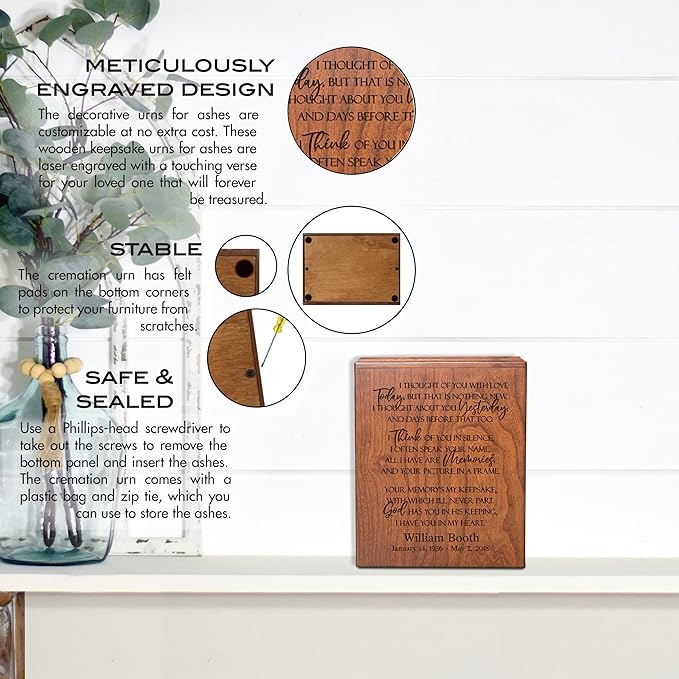 METICULOUSLY
ENGRAVED DESIGN
The decorative urns for ashes are
customizable at no extra cost. These
wooden keepsake urns for ashes are
laser engraved with a touching verse
for your loved one that will forever
be treasured.
I THOUGHT OF
day, BUT THAT IS N
HOUGHT ABOUT YOU
AND DAYS BEFORE T
I Think OF YOU IN
OFTEN SPEAK Y
STABLE
The cremation urn has felt
pads on the bottom corners
to protect your furniture from
scratches.
SAFE &
SEALED
Use a Phillips-head screwdriver to
take out the screws to remove the
bottom panel and insert the ashes.
The cremation urn comes with a
plastic bag and zip tie, which you
can use to store the ashes.
I THOUGHT OF YOU WITH LOVE
Today, BUT THAT IS NOTHING NEW.
I THOUGHT ABOUT YOU Yesterday,
AND DAYS BEFORE THAT TOO.
I Think OF YOU IN SILENCE,
I OFTEN SPEAK YOUR NAME.
ALL I HAVE ARE Memories,
AND YOUR PICTURE IN A FRAME.
YOUR MEMORY'S MY KEEPSAKE,
WITH WHICH I'LL NEVER PART.
God HAS YOU IN HIS KEEPING,
I HAVE YOU IN MY HEART.
William Booth
January 14, 1936 - May 2, 2018